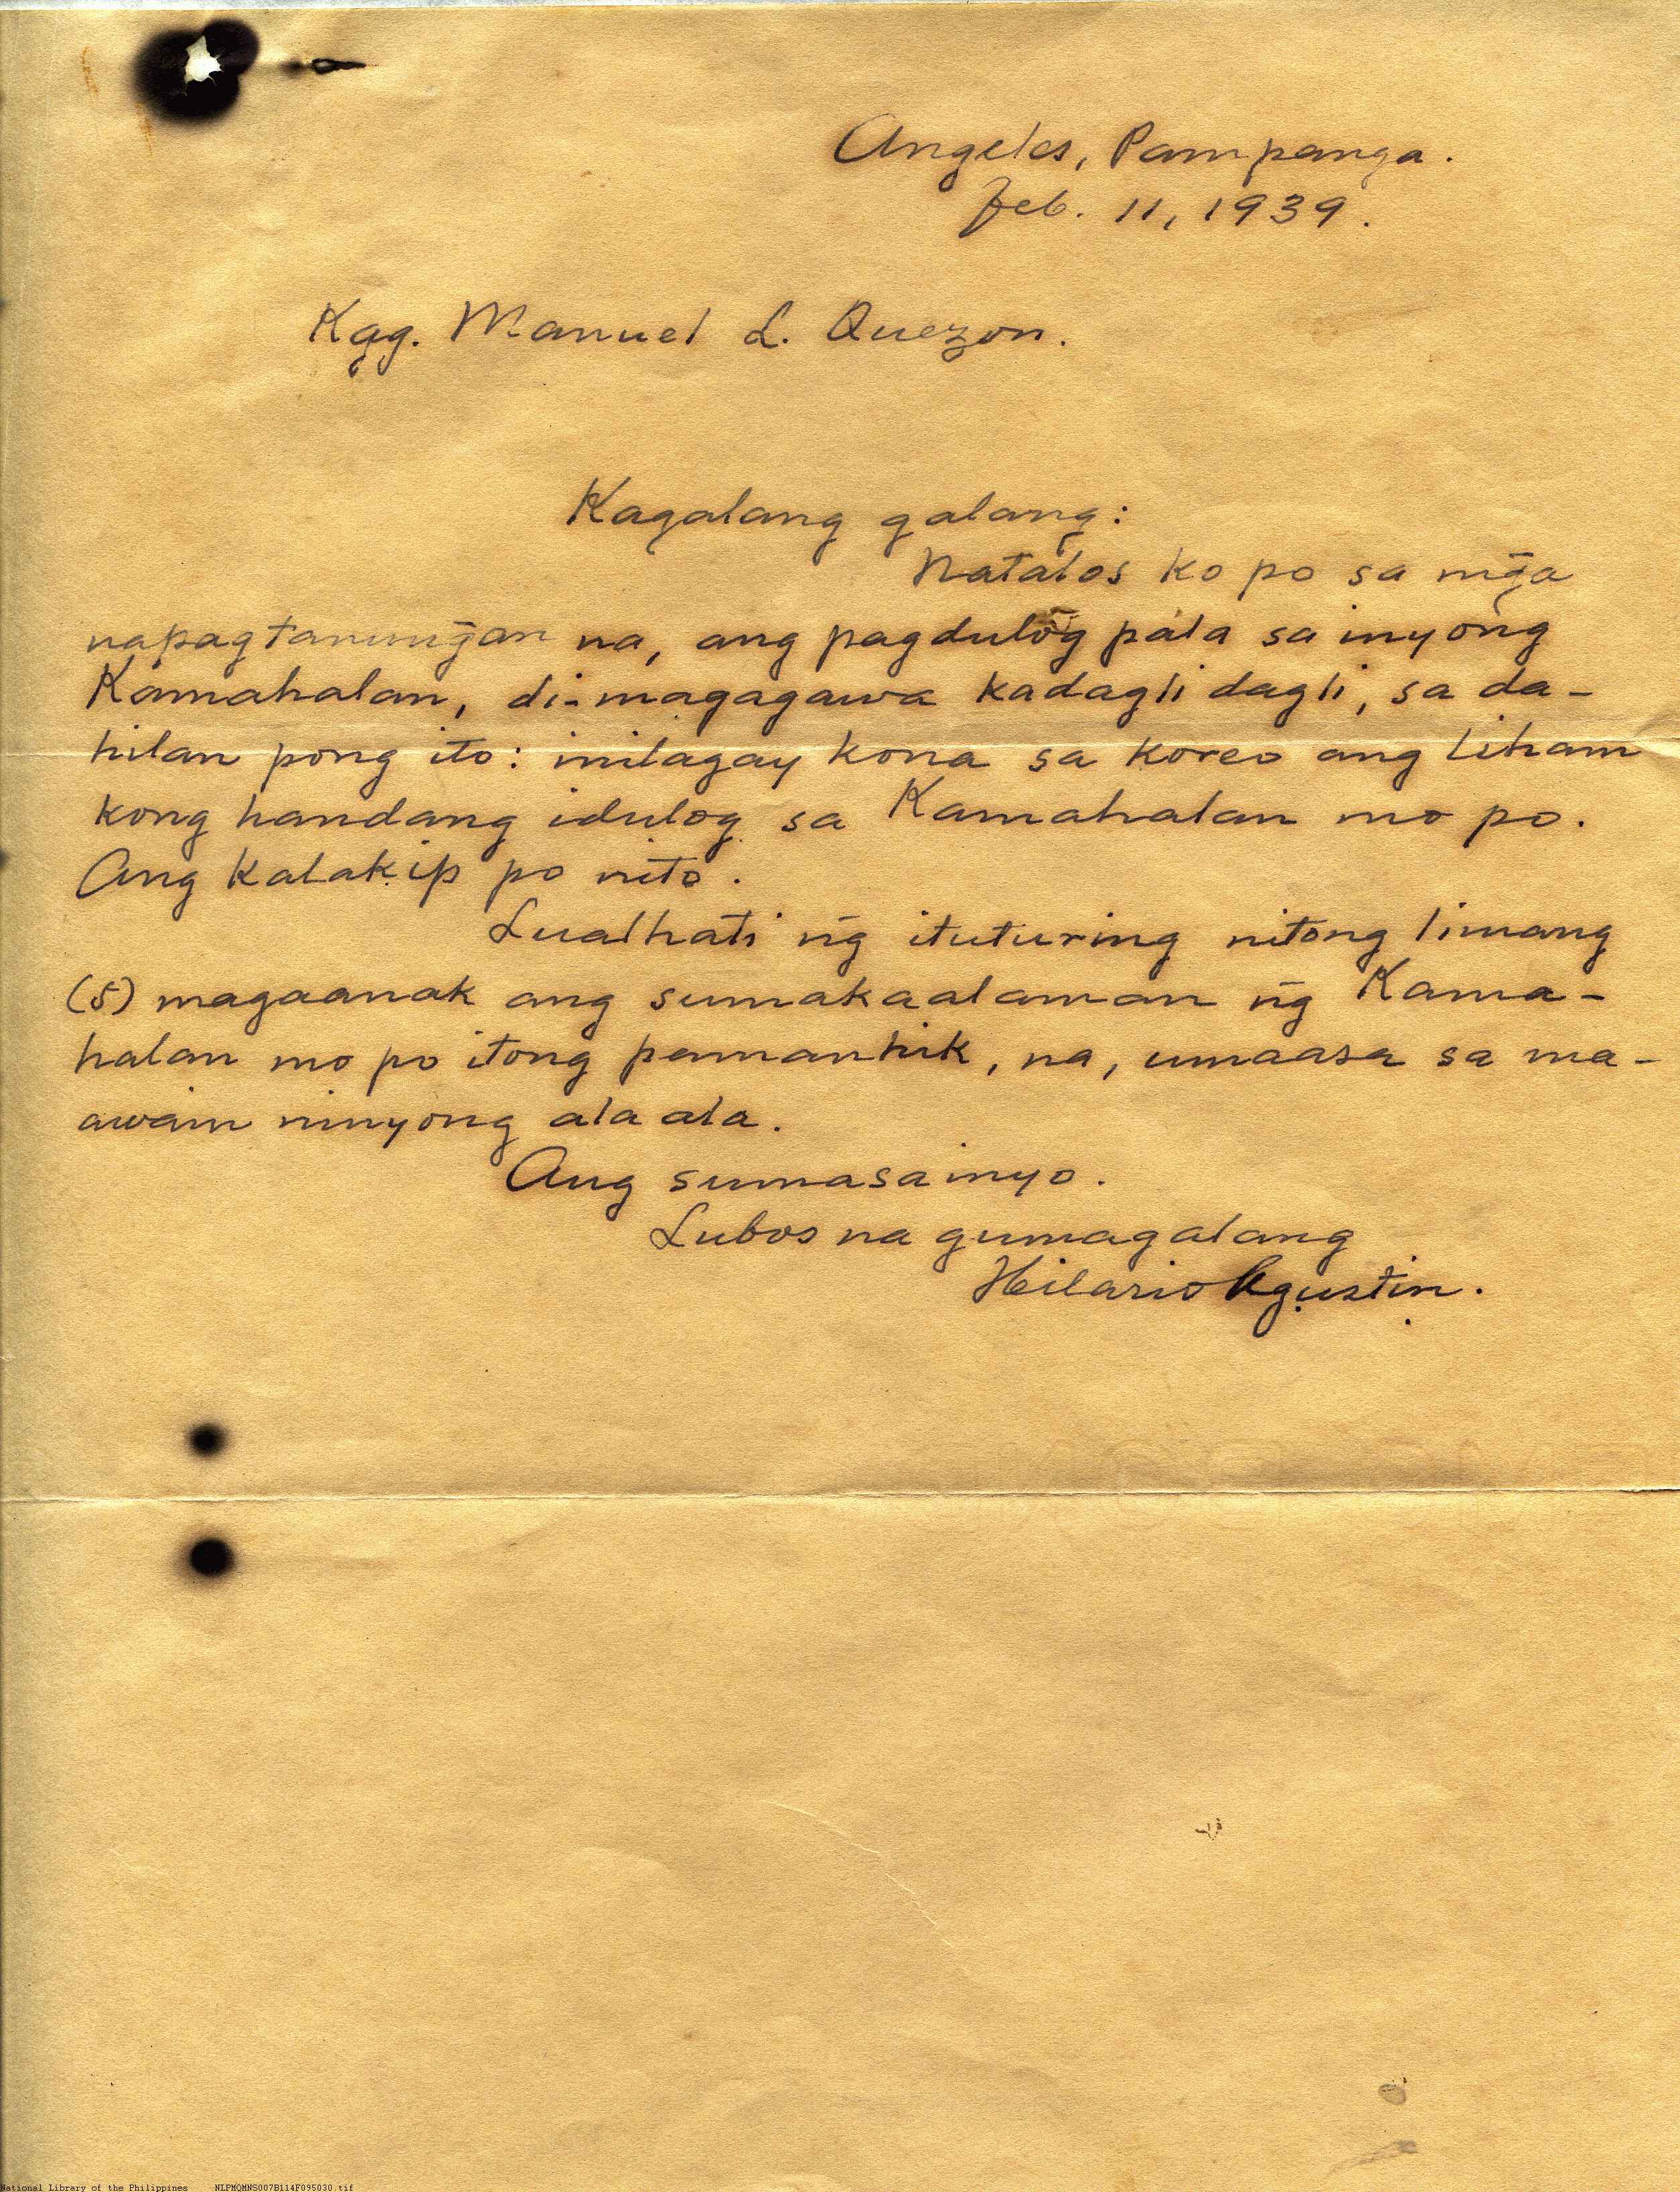 Angeles, Pampanga.
Feb. 11, 1939.
Kgg. Manuel L. Quezon.
Kagalang galang:
Natalos ko po sa mg̃a
napagtanung̃an na, ang pagdulog pala sa inyong
Kamahalan, di-magagawa kadagli dagli, sa da-
hilan pong ito: inilagay kona sa koreo ang liham
kong handang idulog sa Kamahalan mo po.
Ang kalakip po nito.
Lualhati ng̃ ituturing nitong limang
(5) magaanak ang sumakaalaman ng̃ Kama-
halan mo po itong pamanhik, na, umaasa sa ma-
awain ninyong ala ala.
Ang sumasainyo.
Lubos na gumagalang
Hilario Agustin.
National Library of the Philippines NLPMQMNS007B114F095030.tif